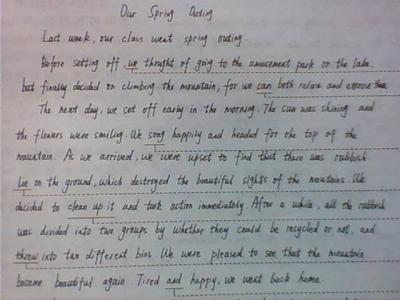 Our Spring Outing
Last week, our class went spring outing.
Before setting off, we thought of going to the amusement park or the lake,
but finally decided on climbing the mountain, for we can both relax and exercise there.
The next day, we set off early in the morning. The sun was shining and
the flowers were smiling. We song happily and headed for the top of the
mountain. As we arrived, we were upset to find that there was rubbish
lie on the ground, which destroyed the beautiful sights of the mountains. We
decided to clean up it and took action immediately. After a while, all the rubbish
was divided into two groups by whether they could be recycled or not, and
threw into two different bins. We were pleased to see that the mountain
became beautiful again Tired and happy, we went back home.